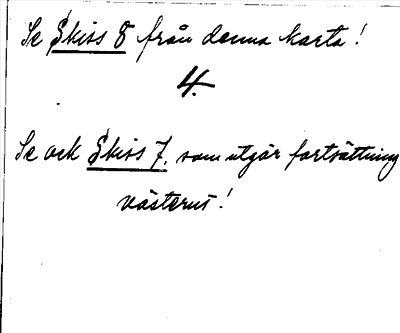 Se Skiss 8 från denna karta!
4.
Se ock Skiss 7. som utgör fortsättning
västerut!